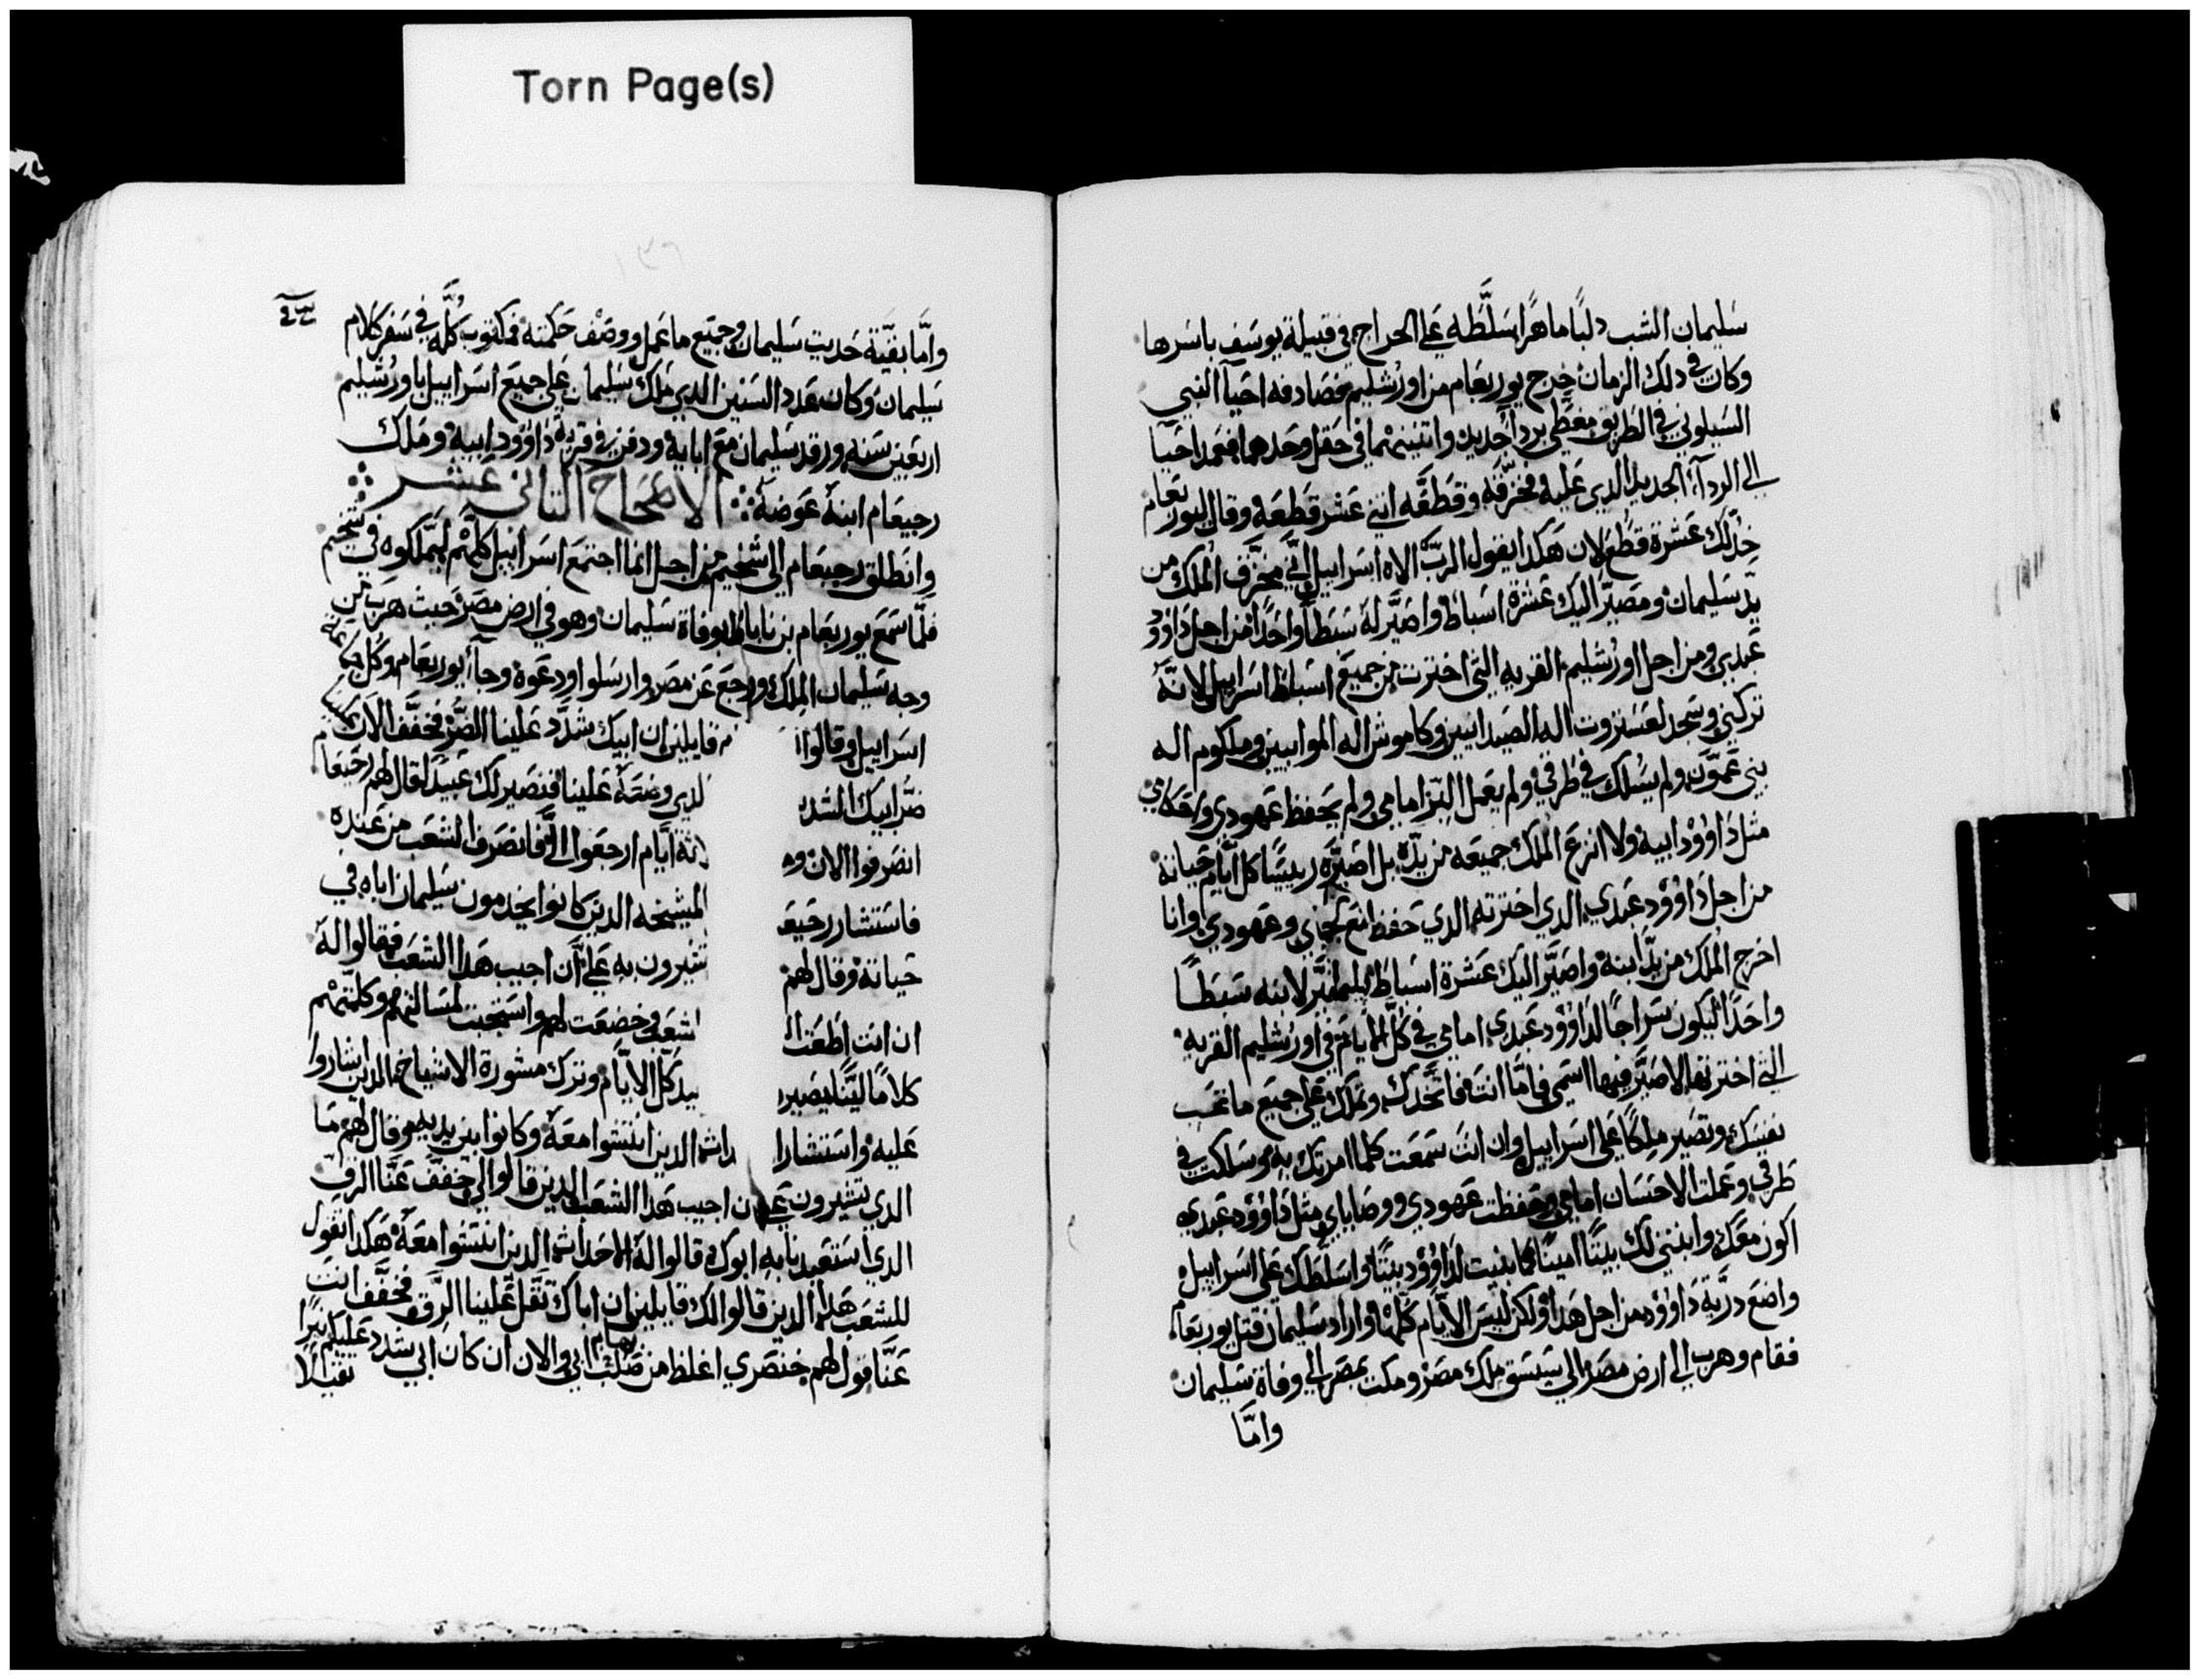 Torn Page(s)
سليمان الشب دلبًا ماهرًا سلَّطه على الخراج في قبيلة يوسف باسرها
وكان في دلك الزمان خرج يوربعام من اورشليم فصادفه احيا النبي
السيلوني في الطريق مغطي بردآ جديد واثنينهما في حقل وحدهما فعمد احيا
الي الردآ الجديد الدي عليه فخرّقه وقطعَّه اثني عشر قطعه وقال ليوربعام
خد لك عشرة قطع لان هكدا يقول الربّ الاه اسراييل انّي مخرّق الملك من
يدّ سليمان ومصيّر اليك عشرة اسباط واصيَّر له سبطًا واحدًا من اجل داوُود
عبدي ومن اجل اورُشليم القريه التي اخترت من جميع اسباط اسراييل لانّه
تركني وسجد لعستروت اله الصيدانيين وكاموش اله الموابيين وملكوم اله
بني عمّون ولم يسلك في طرقي ولم يعمل البّر امامي ولم يحفظ عهودي
مثل داوُود ابيه ولا انزع الملك جميعه من يدّه بل اصيّره رييسًا كل ايّام حياته
من اجل داوُود عبدي الدي اخترته الدي حفظ وعهودي وانا
اخرج الملك من يدّ ابنه واصيَّر اليك عشرة اسباط لابنه سبطًا
واحدًا ليكون سراجًا لداوُود عبدي امامي في كلّ الايام في اورُشليم القريه
التي اخترتها لاصيَّر فيها اسمي فامّا انت فاتّخدك وتملك على جميع ما تحب
نفسك وتصير ملكًا على اسراييل وان انت سمعت كلما امرتك به وسلكت في
طرقي وعملت الاحسان امامي وحفظت عهودي ووصاياي مثل داوُود عبدي
اكون معك وابتني لك بيتًا امينًا كما بنيت لداوُود بيتًا واسلّطك على اسراييل
واضع دريّة داوُود من اجل هدا ولكن ليس الايّام كلّها واراد سليمان قتل يوربعام
فقام وهرب الي ارض مصر الي شيسق ملك مصر ومكث بمصر الي وفاة سليمان
وامّا
وامَّا بقيّة حديث سليمان وجميع ما عمل ووصف حكمته فمكتوب كلّه في سفر كلام
سليمان وكان عدد السنين الدي ملك سليمان على جميع اسراييل باورُشليم
اربعين سنه ورقد سليمان مع ابايه ودفن في قرية داوُود ابيه وملك
رحبعام ابنه عوضه الاصحاح الثاني عشر
وانطلق رحبعام الي شخيم من اجل انما اجتمع اسراييل كلّهم ليملّكوه في شخيم
فلمّا سمع يوربعام بن ناباط بوفاة سليمان وهو في ارض مصر حيث هرب من
وجه سليمان الملك ورجع عن مصر وارسلوا ودعوه وجآ يوربعام وكل جماعة
اسراييل وقالوا قايلين ان ابيك شدَّد علينا الضرّ فخفَّف الان
ضرّ ابيك الشد لدي وضعه علينا فنصير لك عبيد فقال لهم رحبعام
انصرفوا الان و ثه ايّام ارجعوا اليّ فانصرف الشعب من عنده
فاستشار رحبع المشيخه الدين كانوا يخدمون سليمان اباه في
حياته وقال لهم تشيرون به علي انّ اجيب هدا الشعب فقالوا له
ان انت اطعت الشعب وخضعت لهم واستجبت لمسالتهم وكلّمتهم
كلامًا ليّنًا يصير بيد كلّ الايّام وترك مشورة الاشياخ الدين اشاروا
عليه واستشار ا داث الدين انتشوا معه وكانوا بين يديه وقال لهم ما
الدي تشيرون علي ان اجيب هدا الشعب الدين قالوا لي خفف عنّا الرق
الدي استعبدنا به ابوك قالوا له الاحداث الدين انتشوا معه هكدا تقول
للشعب هدا الدين قالوا لك قايلين ان اباك تقّل علينا الرّق فخفَّف انت
عنّا قول لهم خنصري اغلظ من ابهام ابي والان ان كان ابي شدد عليكم نيرًا
تقيلًا